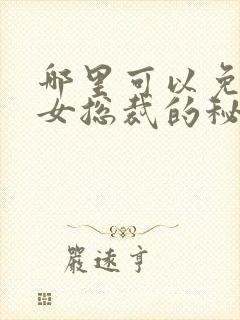 哪里可以免
女总裁的秘
严速亨